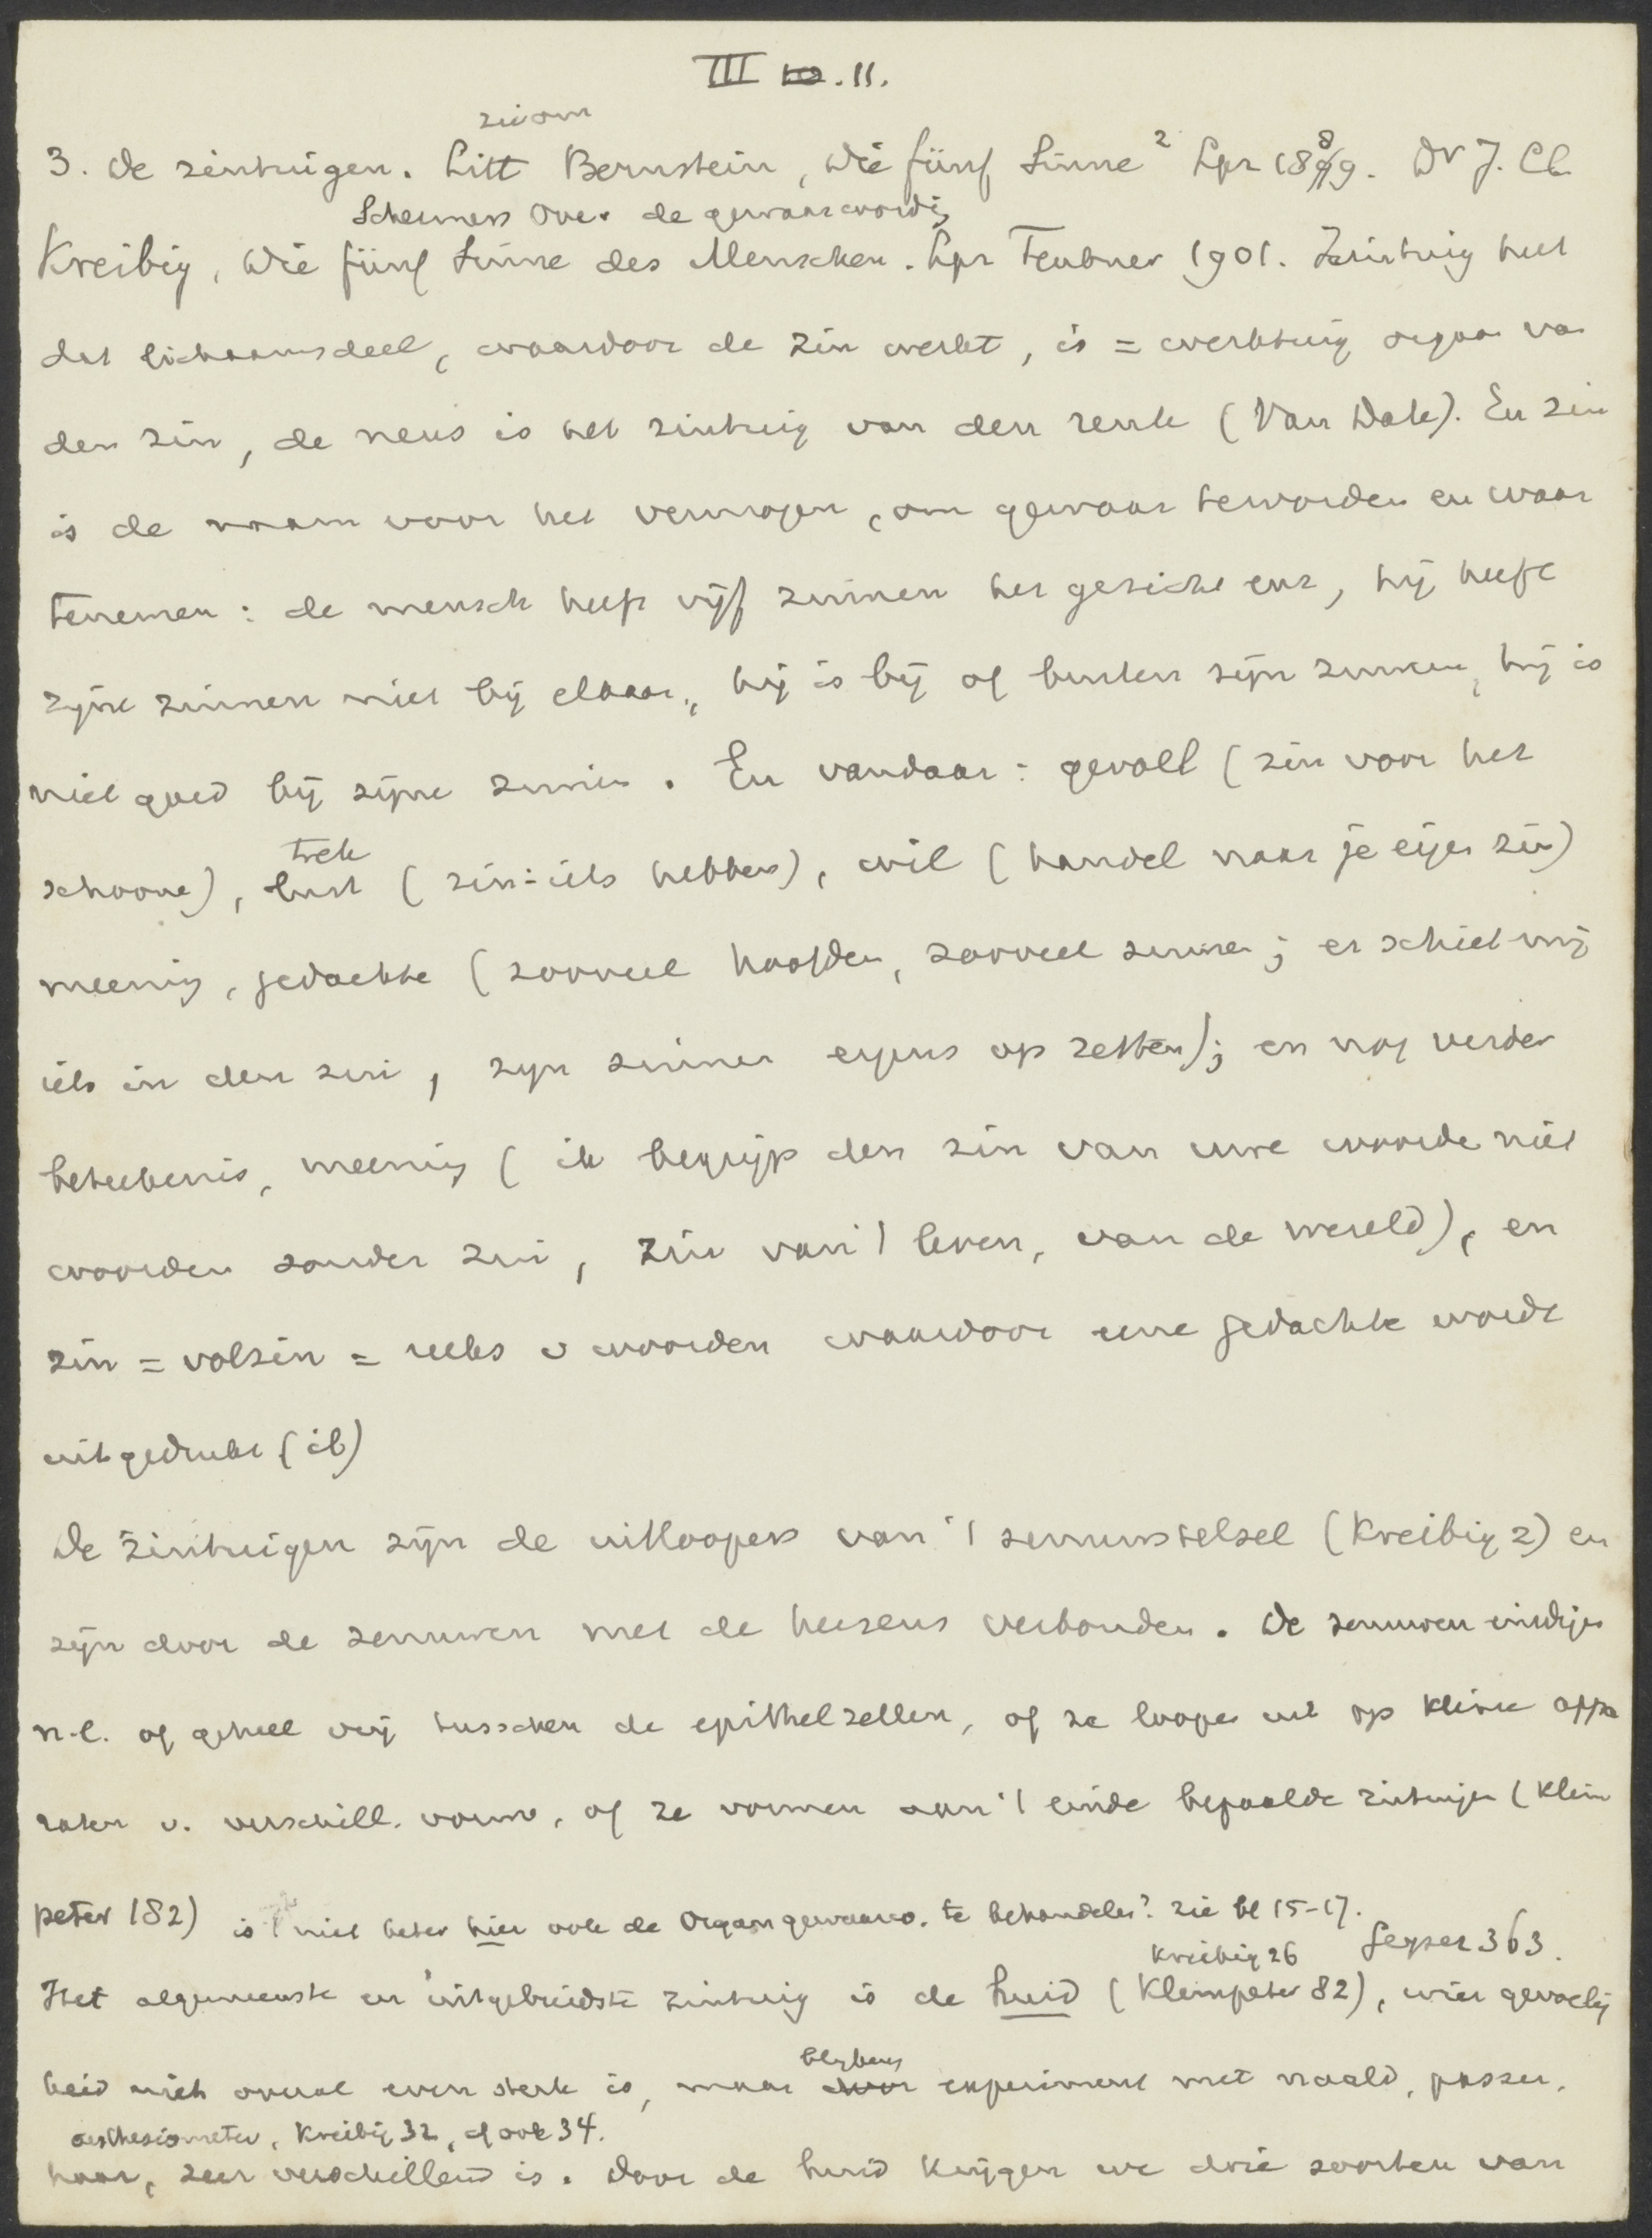 III 10. 11.
zie om
3. De zintuigen. Litt Bernstein, Die fünf Sinne² Lpz 1889. Dr J. Cl.
Schermers Over de gewaarwordg
Kreibig, Die fünf Sinne des Menschen. Lpz Teubner 1901. Zintuig het
dat lichaamsdeel, waardoor de zin werkt, is = werktuig orgaan van
den zin, de neus is het zintuig van den reuk (Van Dale). En zin
is de naam voor het vermogen, om gewaar teworden en waar
tenemen: de mensch heeft vijf zinnen het gezicht enz, hij heeft
zijne zinnen niet bij elkaar, hij is bij of buiten zijn zinnen, hij is
niet goed bij zijne zinnen. En vandaar: gevoel (zin voor het
trek
schoone), lust (zin in iets hebben), wil (handel naar je eigen zin)
meening, gedachte (zooveel hoofden, zooveel zinnen; er schiet mij
iets in den zin, zijn zinnen ergens op zetten); en nog verder
beteekenis, meening (ik begrijp den zin van uwe woorden niet
woorden zonder zin, zin van 't leven, van de wereld), en
zin = volzin = reeks v woorden waardoor eene gedachte wordt
uitgedrukt (ib)
De zintuigen zijn de uitloopers van 't zenuwstelsel (Kreibig 2) en
zijn door de zenuwen met de hersens verbonden. De zenuwen eindigen
n.l. of geheel vrij tusschen de epithelzellen, of ze loopen uit op kleine appa
raten v. verschill. vorm, of ze vormen aan 't einde bepaalde zintuigen (Klein
peter 182) is 't niet beter hier ook de Orgaangewaarw. te behandelen? zie bl 15-17.
Kreibig 26 Geyser 363.
Het algemeenste en uitgebreidste zintuig is de huid (Kleinpeter 82), wier gevoelig
blijkens
heid niet overal even sterk is, maar door experiment met naald, passer,
aesthesiometer, Kreibig 32, cf ook 34.
haar, zeer verschillend is. Door de huid krijgen we drie soorten van